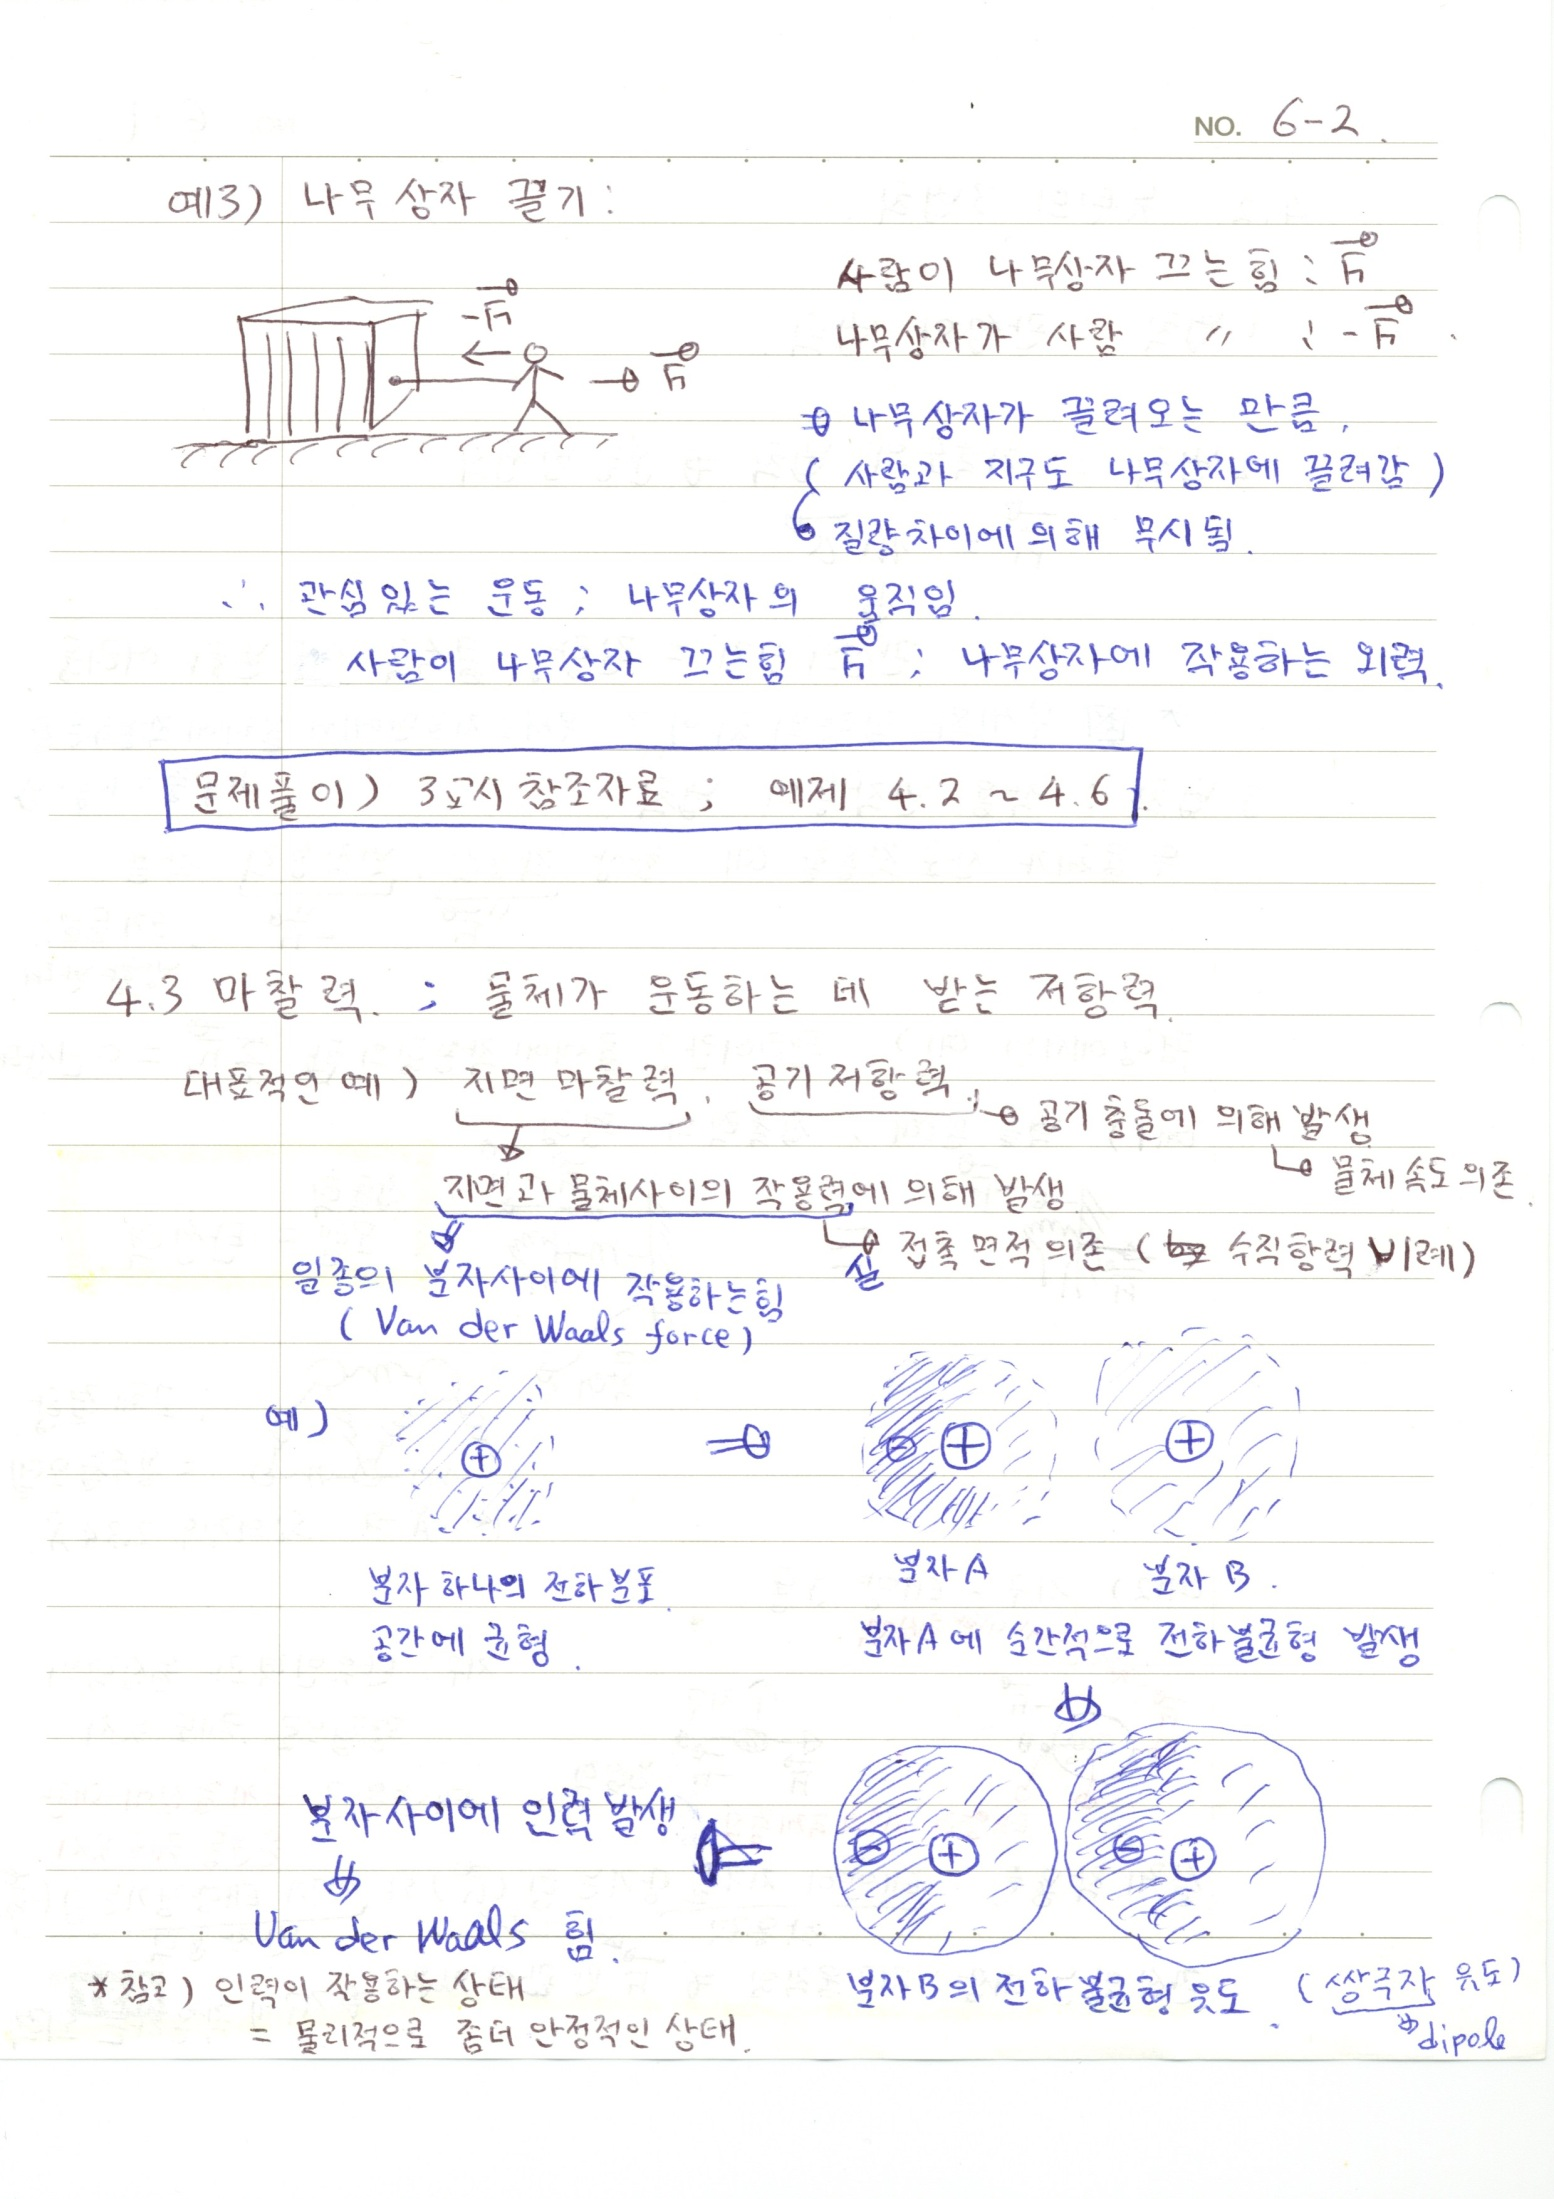 NO. 6-2.
예3) 나무상자 끌기 :
사람이 나무상자 끄는 힘 : F
나무상자가 사람 〃 : -F
-F
F
나무상자가 끌려오는 만큼,
( 사람과 지구도 나무상자에 끌려감 )
질량차이에 의해 무시됨.
∴ 관심있는 운동 ; 나무상자의 움직임.
사람이 나무상자 끄는힘 F ; 나무상자에 작용하는 외력.
문제풀이) 3교시 참조자료 ; 예제 4.2 ~ 4.6.
4.3 마찰력. ; 물체가 운동하는 데 받는 저항력.
대표적인 예) 지면 마찰력, 공기 저항력.
공기 충돌에 의해 발생
물체 속도 의존.
지면과 물체사이의 작용력에 의해 발생
실 접촉 면적 의존 ( 수직항력 비례)
일종의 분자사이에 작용하는힘
( Van der Waals force )
예)
+
⊖ +
+
분자 A
분자 B.
분자 하나의 전하분포.
공간에 균형.
분자A에 순간적으로 전하불균형 발생
⊖ +
⊖ +
분자사이에 인력 발생
Van der Waals 힘.
분자B의 전하 불균형 유도. (쌍극자 유도)
dipole
*참고) 인력이 작용하는 상태
= 물리적으로 좀더 안정적인 상태.